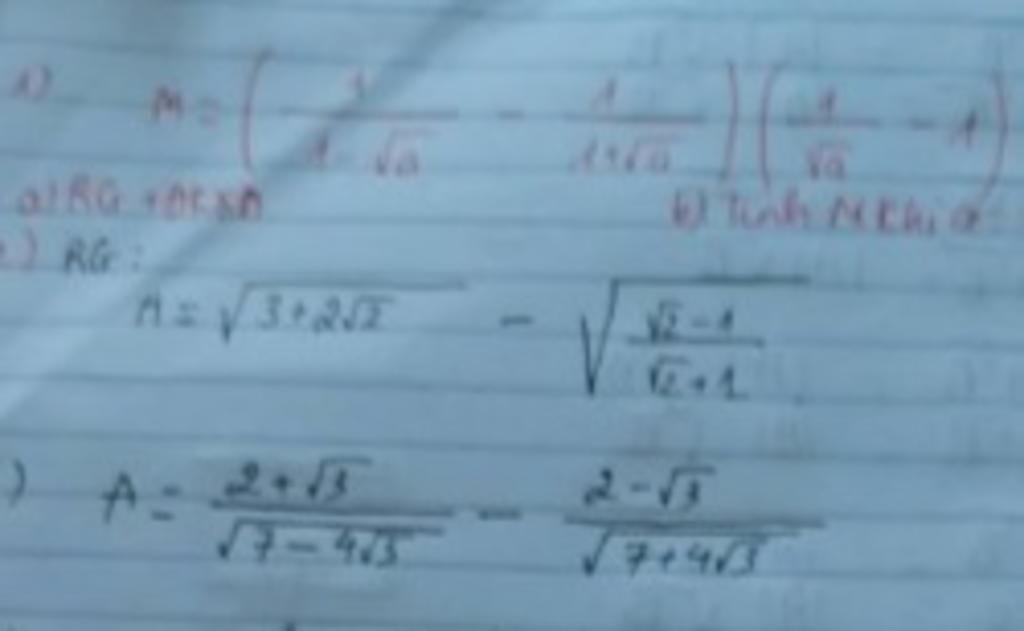 1) M = ( 1/(1 - √a) - 1/(1+√a) ) ( 1/√a - 1 )
a) RG b) Tính M khi a
) RG :
A = √(3+2√2) - √((√2-1)/(√2+1))
) A = (2+√3)/√(7-4√3) - (2-√3)/√(7+4√3)